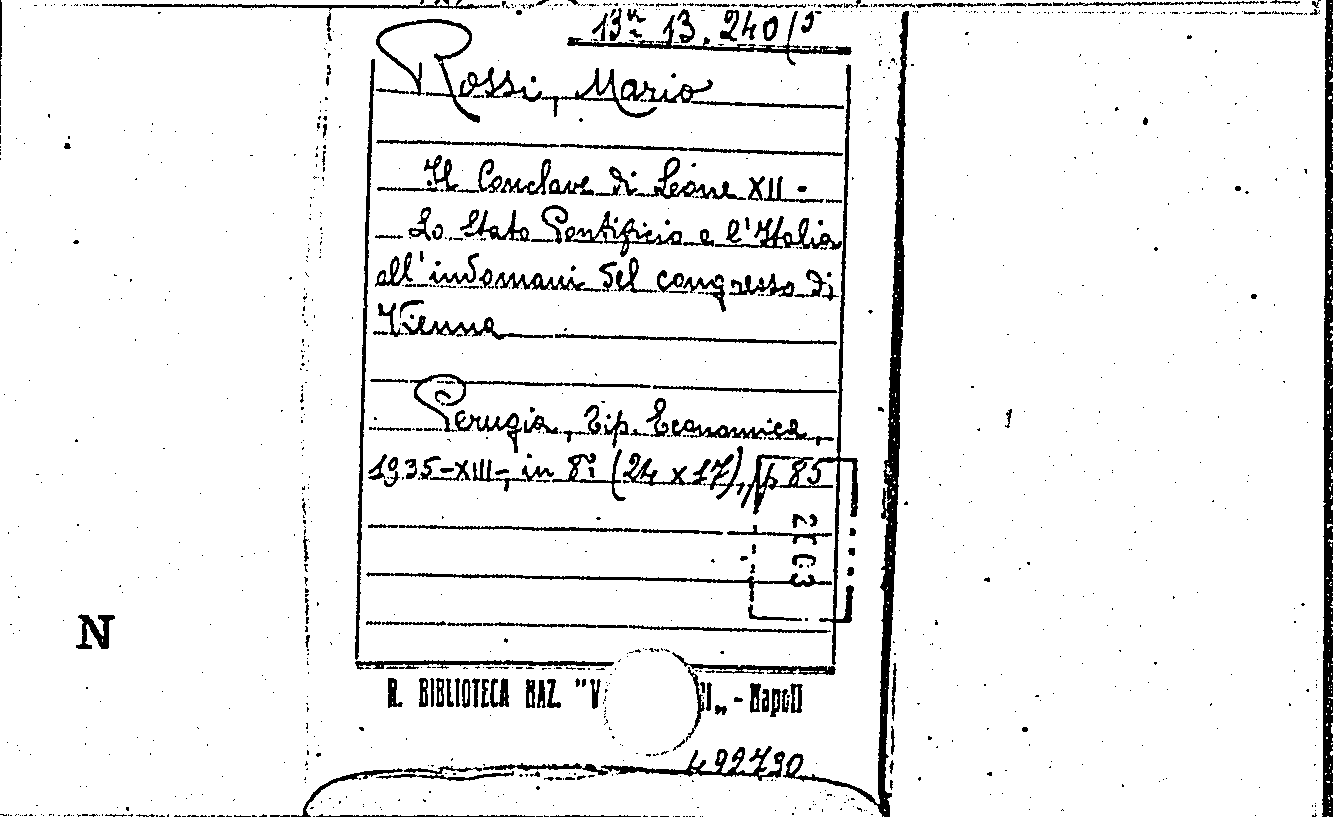 13ª 13.240/5
Rossi, Mario
Il Conclave di Leone XII -
Lo Stato Pontificio e l'Italia
all'indomani del congresso di
Vienna
Perugia, Tip. Economica,
1935-XIII-, in 8º (24 x 17), p 85
N
R. BIBLIOTECA NAZ. "V EI„ - Napoli
492730